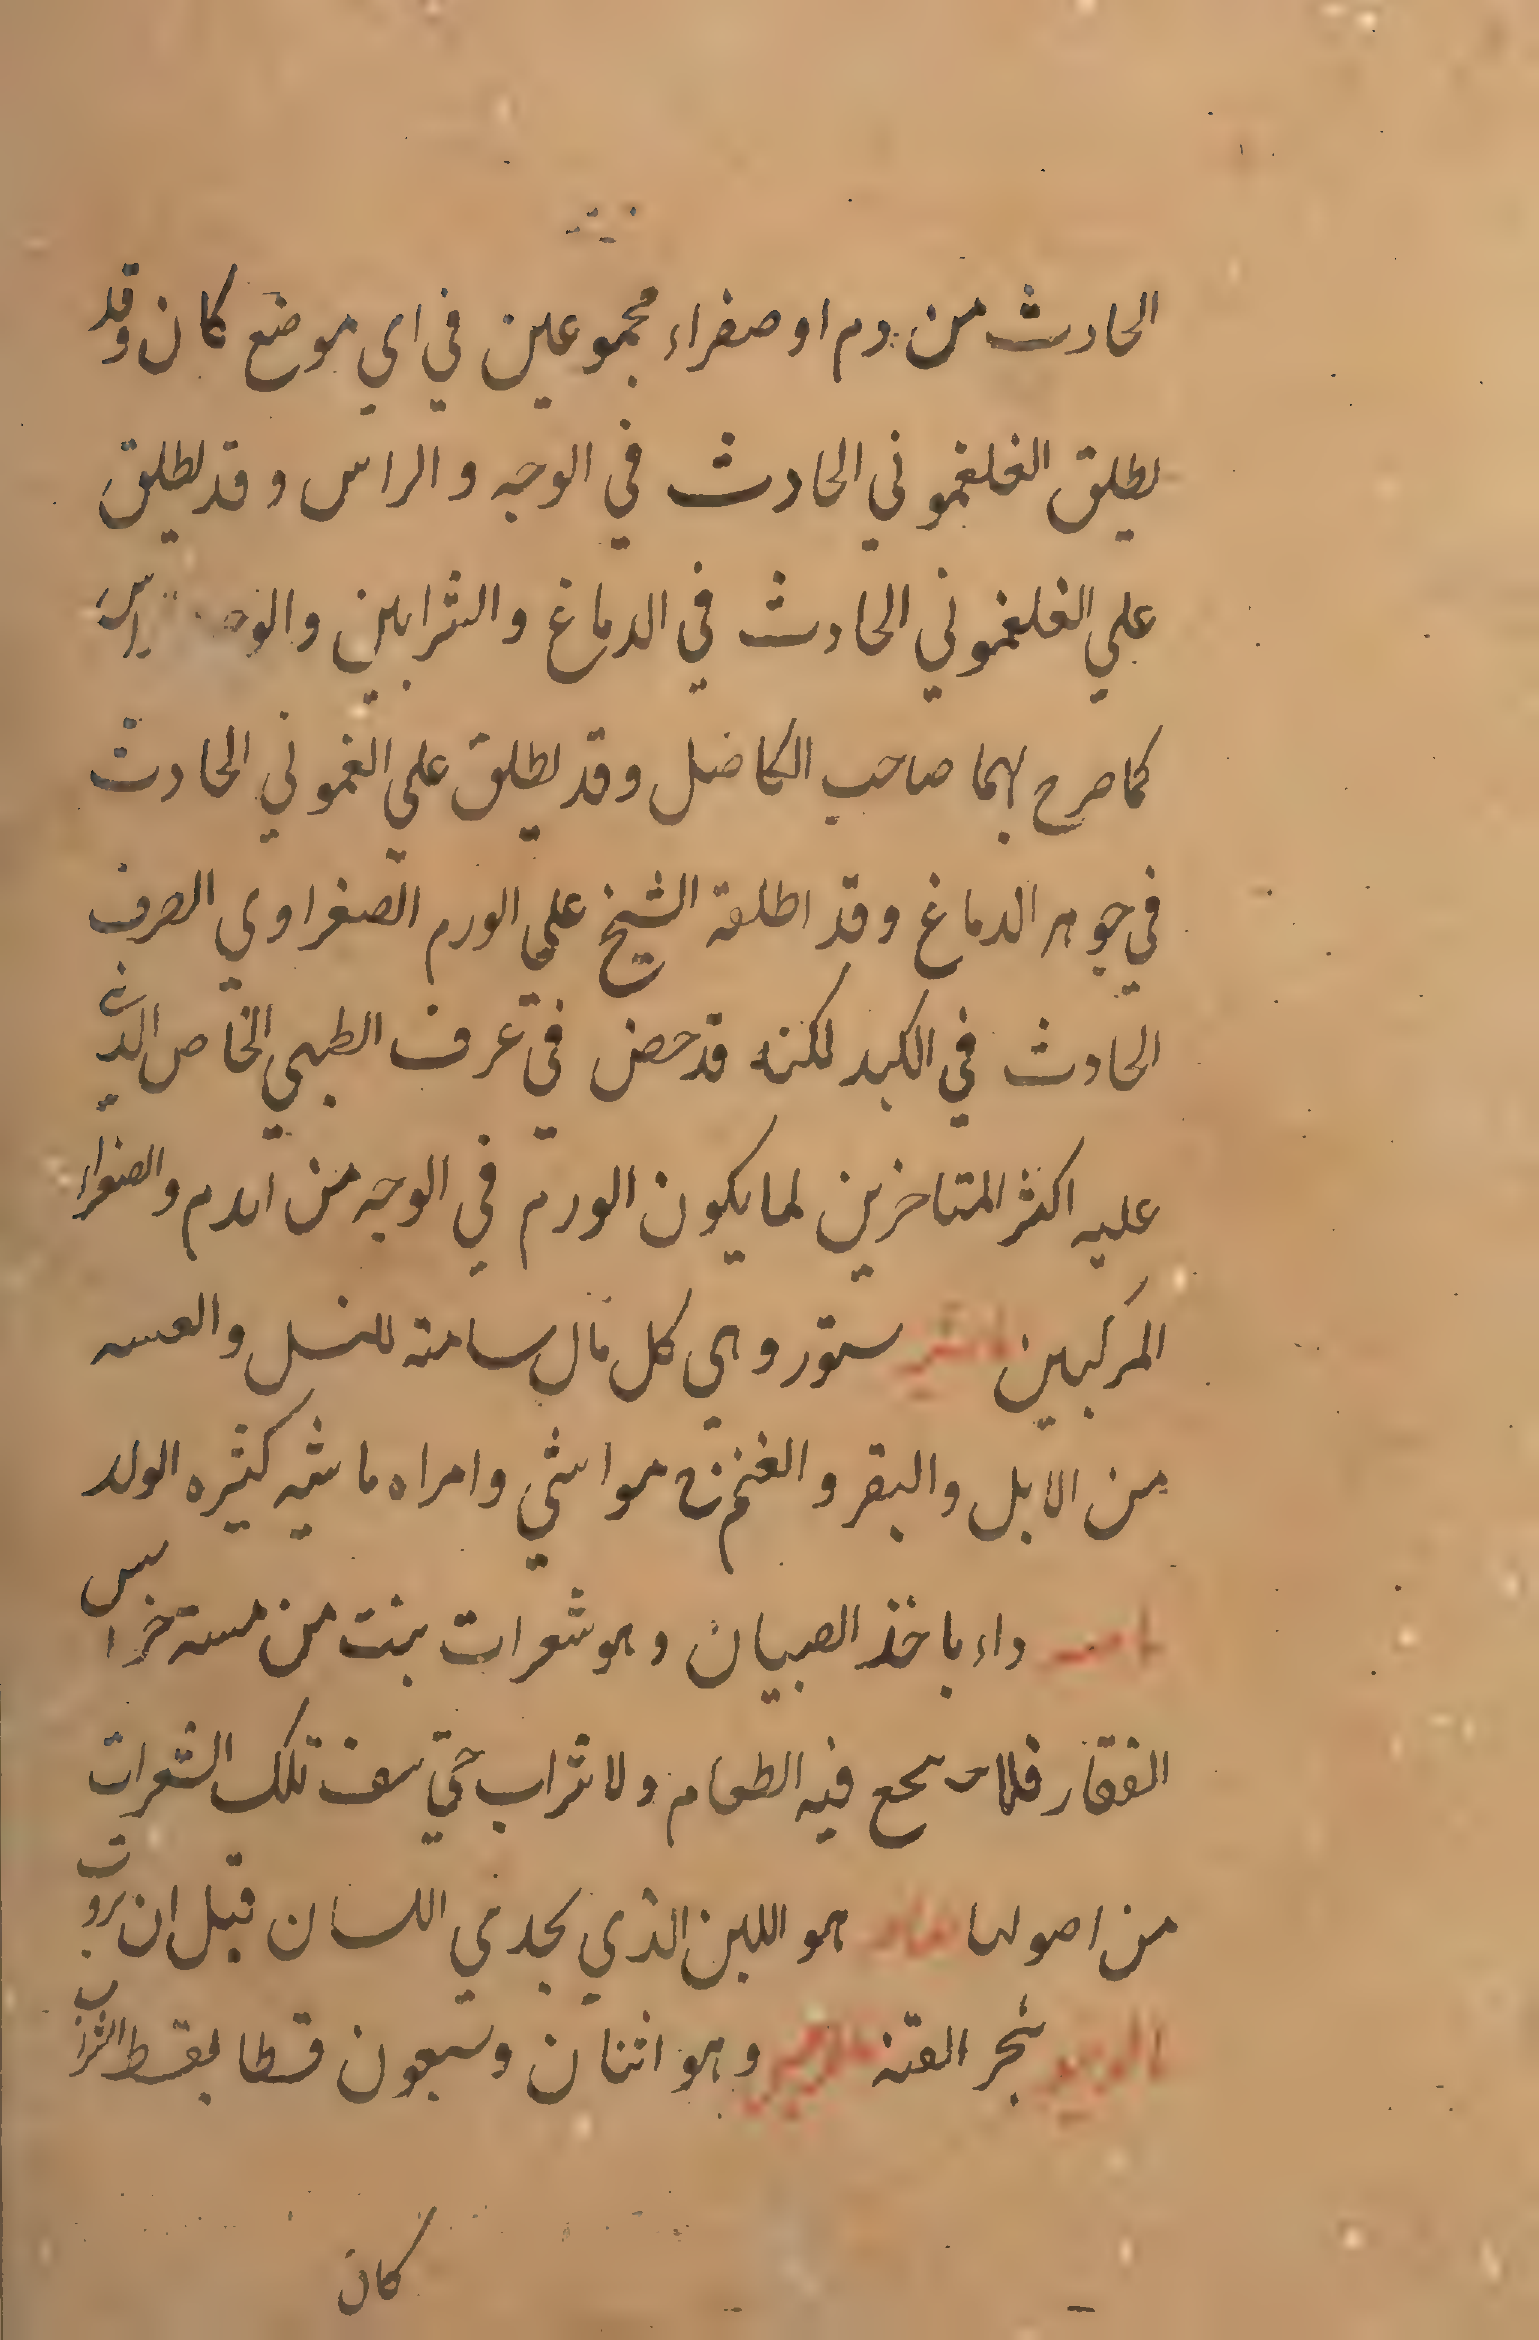 الحادث من دم او صفراء مجموعين في اي موضع كان وقد
يطلق الفلغموني الحادث في الوجه والراس وقد يطلق
علي الفلغموني الحادث في الدماغ والشرايين والوجه والراس
كما صرح بهما صاحب الكامل وقد يطلق علي الغموني الحادث
في جوهر الدماغ وقد اطلقه الشيخ علي الورم الصفراوي الصرف
الحادث في الكبد لكنه قد خص في عرف الطبي الخاص الذي
عليه اكثر المتاخرين لما يكون الورم في الوجه من الدم والصفراء
المركبين ستور وهي كل مال سامته للنسل والقسه
من الابل والبقر والغنم ج مواشي وامراه ماشيه كثيره الولد
داء ياخذ الصبيان وهو شعرات ينبت من
الفقار فلا فيه الطعام ولا شراب حتي تلك الشعرات
من اصولها هو اللبن الذي يحذي اللسان قبل ان يروب
شجر القنه وهو اثنان وسبعون قسطا بقسط الشراب
كان